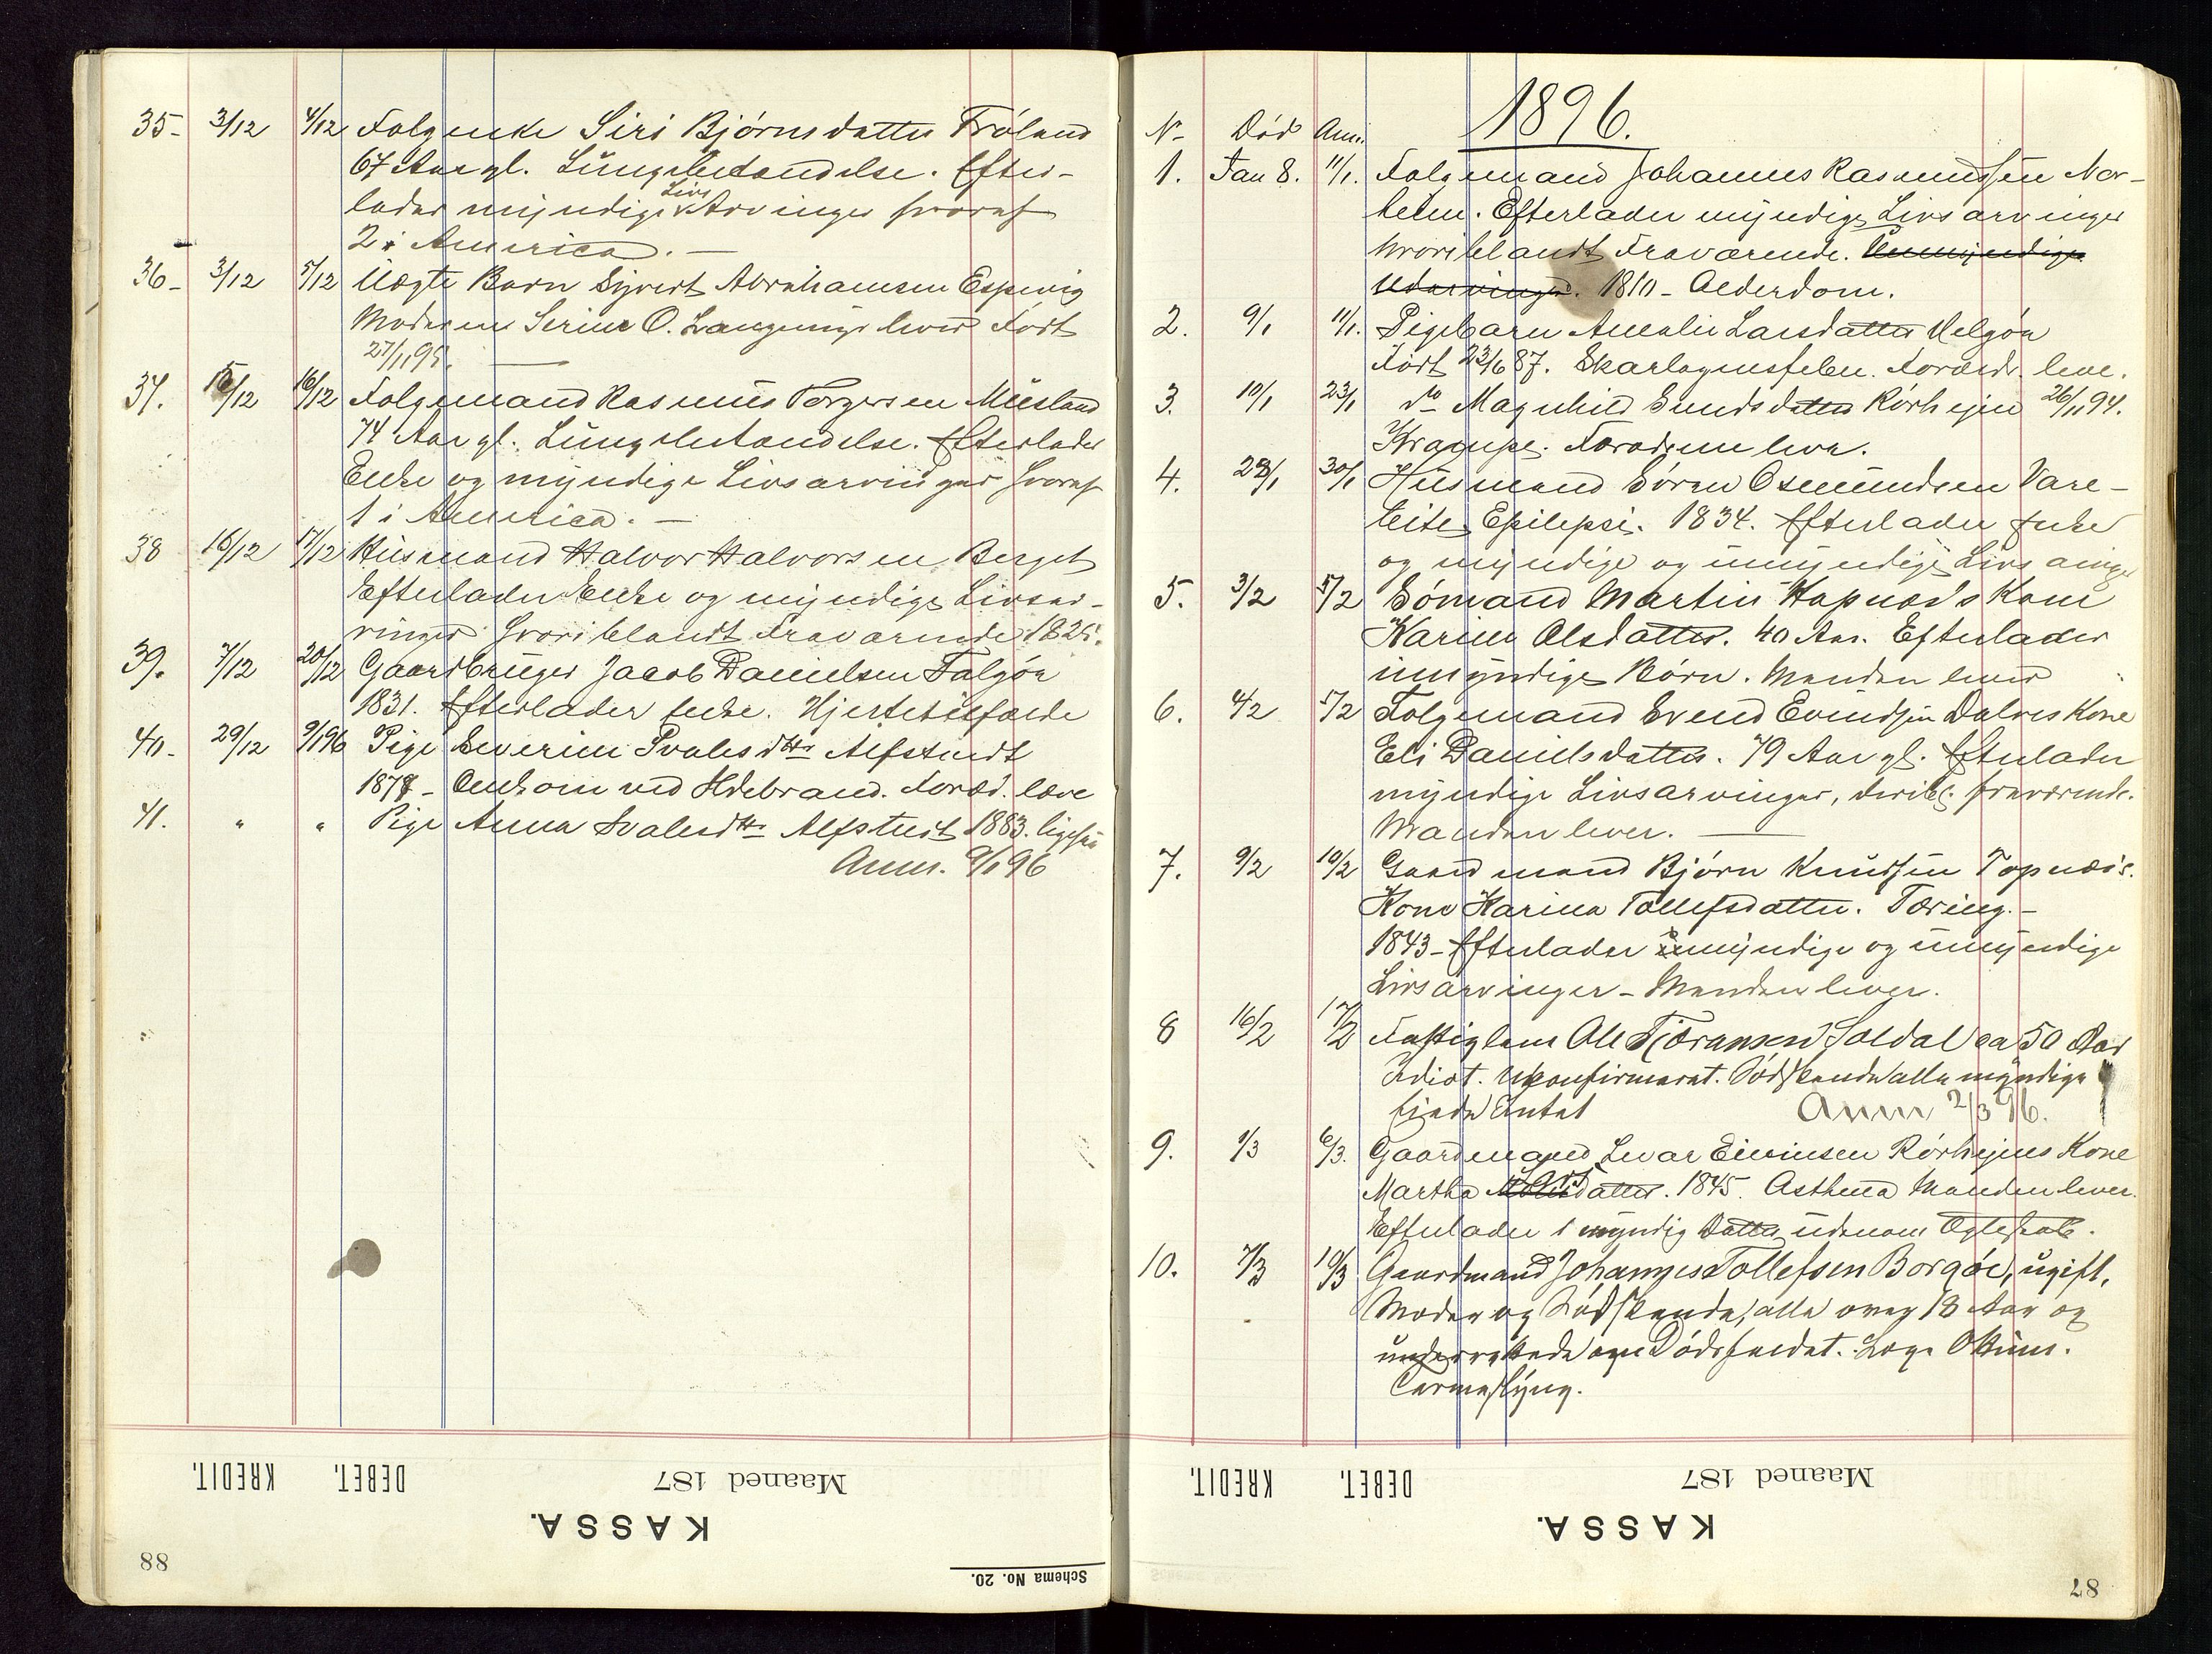 35- 3/12 4/12 Folgenke Siri Bjørnsdatter Frøland
67 Aar gl. Lungebetændelse. Efter-
lader myndige Livs Arvinger hvoraf
2 i America. -
36- 3/12 5/12 Uægte Barn Sivert Abrahamsen Espevig
Moderen Serine O. lever Født
27/11 95.
37. 15/12 16/12 Folgemand Rasmus Torgersen Musland
74 Aar gl. Lungebetændelse. Efterlader
Enke og myndige Livsarvinger hvoraf
1 i America. -
38 16/12 17/12 Husmand Halvor Halvorsen Berget
Efterlader Enke og myndige Livsar-
vinger hvoriblandt Fraværende 1825.
39. 7/12 20/12 Gaardbruger Jacob Danielsen Falgøn
1831. Efterlader Enke. Hjerte
40- 29/12 9/1 96 Pige Severine Svalesdtr Alfstvedt
1878 - Omkom ved Ildebrand. Foræld. leve
41. " " Pige Anna Svalesdtr Alfstvedt 1883. ligesaa
Anm. 9/1 96
1896.
N- Død Anm.
1. Jan 8. 11/1. Folgemand Johannes Rasmussen Nor-
heim. Efterlader myndige Livsarvinger
hvoriblandt Fraværende. Umyndige
Udarvinger. 1810 - Alderdom.
2. 9/1 11/1. Pigebarn Amalie Larsdatter Helgøn
Født 23/6 87. Skarlagensfeber. Forældr. leve.
3. 10/1 23/1 do Magnhild Svendsdatter Rørhejen 26/11 94.
Krampe. Forældrene leve.
4. 28/1 30/1 Husmand Søren Osmundsen Vare-
leite Epilepsi. 1834. Efterlader Enke
og myndige og umyndige Livs
5. 3/2 5/2 Sømand Martin Hapnæs Kone
Karine Olsdatter. 40 Aar. Efterlader
umyndige Børn. Manden lever
6. 4/2 5/2 Folgemand Svend Evindsen Dalves Kone
Eli Danielsdatter. 79 Aar gl. Efterlader
myndige Livsarvinger, deribl. fraværende.
Manden lever. -
7. 9/2 10/2 Gaardmand Bjørn Knudsen Topnæs.
Kone Karina Tollefsdatter. Tæring. -
1843 - Efterlader myndige og umyndige
Livsarvinger - Manden lever.
8 16/2 17/2 Fattiglem Ole Tjøransen Soldal ca 50 Aar
Idiot. Ukonfirmeret. Sødskende alle myndige
Anm 2/3 96.
9. 1/3 6/3. Gaardmand Ivar Eivinsen Rørhejens Kone
Martha Larsdatter. 1845. Asthma Manden lever.
Efterlader 1 myndig Datter udenom Ægteskab.
10. 7/3 10/3 Gaardmand Johannes Tollefsen Borgøe, ugift,
Moder og Sødskende, alle over 18 Aar og
underrettede om Dødsfaldet.
KREDIT. DEBET. Maaned 187
KASSA.
88
Schema No. 20.
KREDIT. DEBET. Maaned 187
KASSA.
87